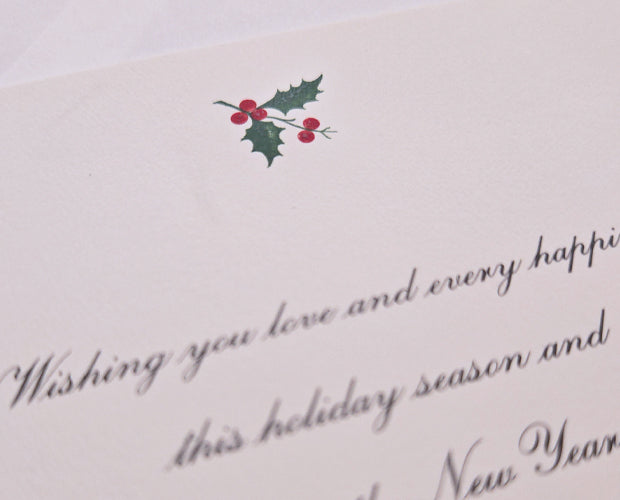 Wishing you love and every happi
this holiday season and
New Year